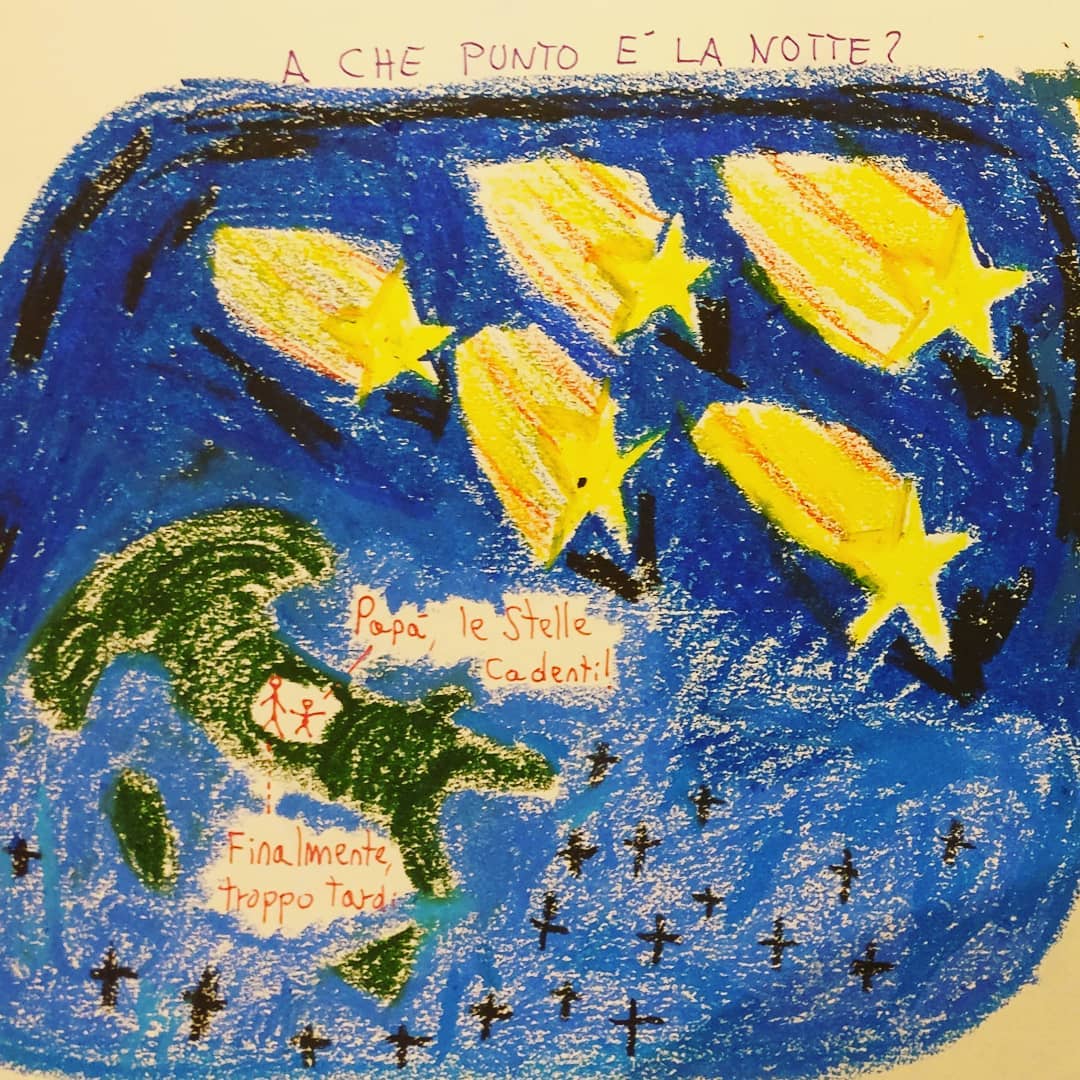 A CHE PUNTO E' LA NOTTE?
Papà, le Stelle
Cadenti!
Finalmente,
troppo Tardi